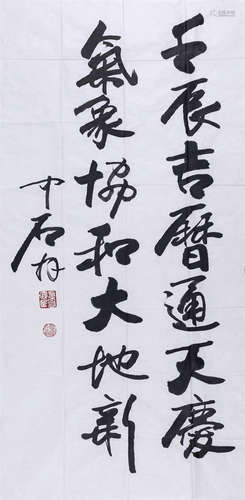 壬辰吉曆通天慶
氣象協和大地新
中石拜